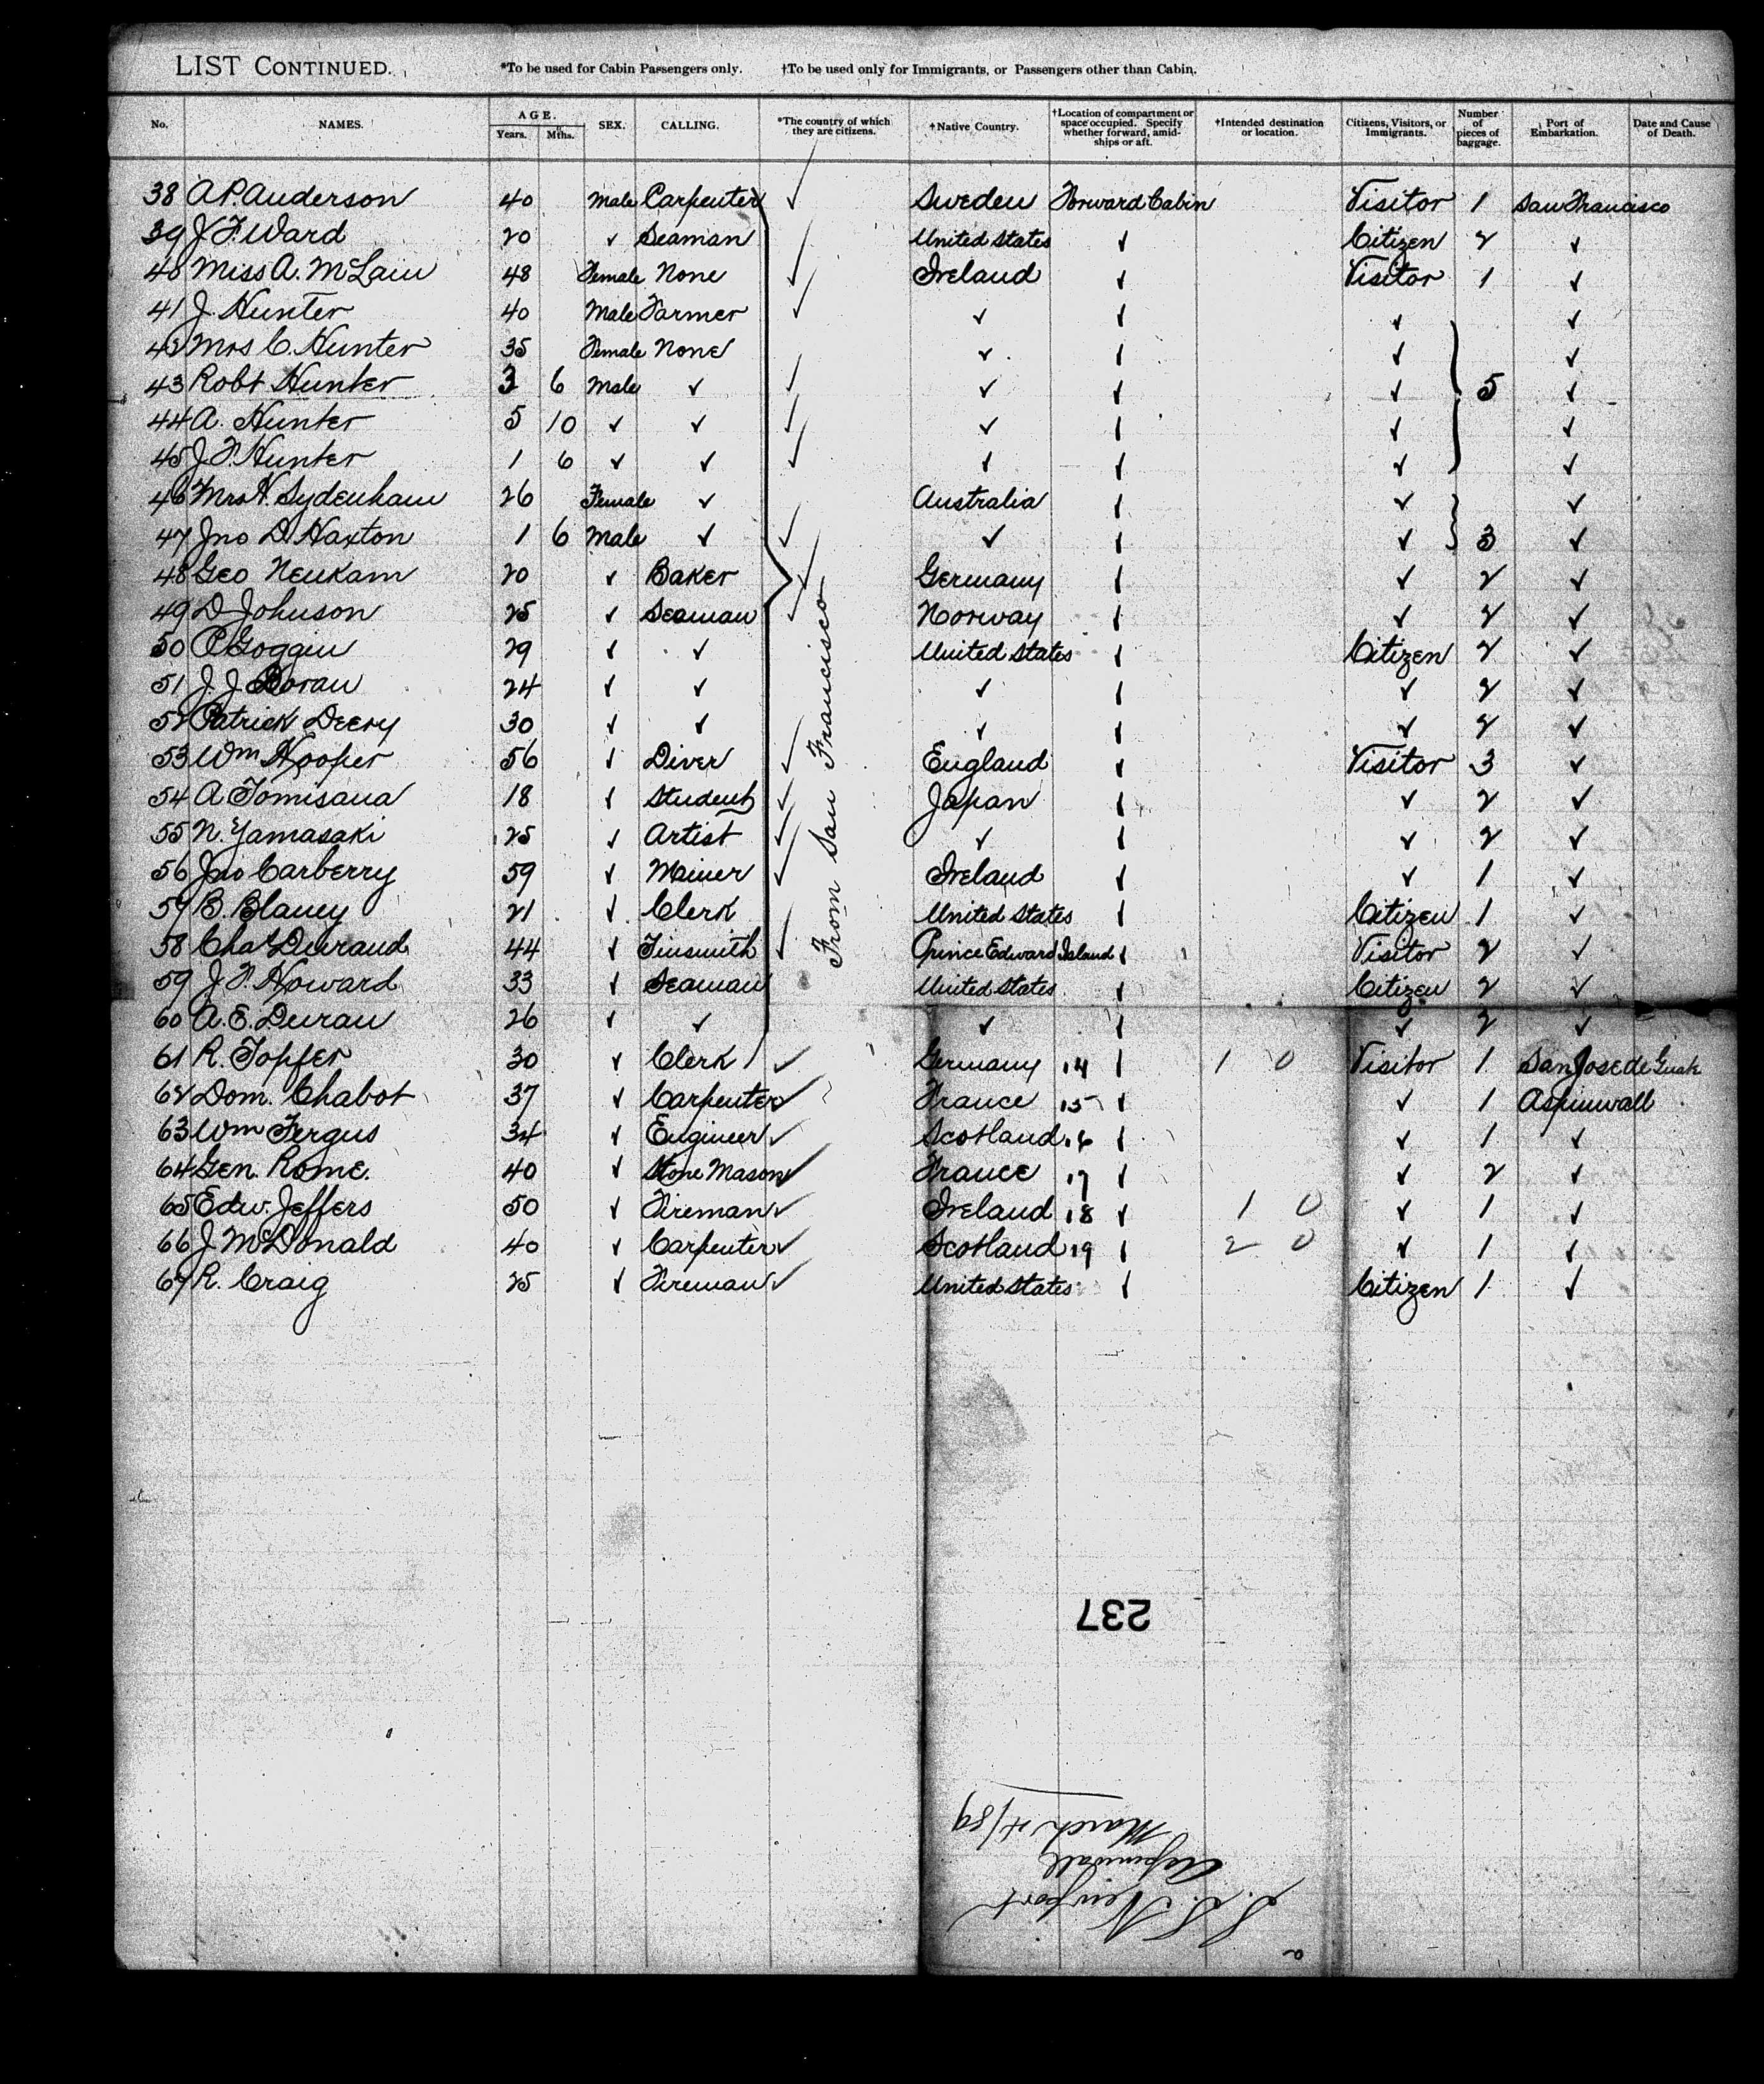 LIST CONTINUED. *To be used for Cabin Passengers only. †To be used only for Immigrants, or Passengers other than Cabin.
No. NAMES. AGE. Years. Mths. SEX. CALLING. *The country of which they are citizens. †Native Country. †Location of compartment or space occupied. Specify whether forward, amidships or aft. †Intended destination or location. Citizens, Visitors, or Immigrants. Number of pieces of baggage. Port of Embarkation. Date and Cause of Death.
38 A P. Anderson 40 Male Carpenter ✓ Sweden Forward Cabin Visitor 1 San Francisco
39 J. F. Ward 20 ✓ Seaman United States ✓ Citizen 2 ✓
40 Miss A. McLain 48 Female None ✓ Ireland ✓ Visitor 1 ✓
41 J. Hunter 40 Male Farmer ✓ ✓ ✓ ✓ ✓
42 Mrs C. Hunter 35 Female None ✓ ✓ ✓ ✓
43 Robt Hunter 3 6 Male ✓ ✓ ✓ ✓ ✓ 5 ✓
44 A. Hunter 5 10 ✓ ✓ ✓ ✓ ✓ ✓ ✓
45 J. F. Hunter 1 6 ✓ ✓ ✓ ✓ ✓ ✓ ✓
46 Mrs H. Sydenham 26 Female ✓ Australia ✓ ✓ ✓
47 Jno D. Haxton 1 6 Male ✓ ✓ ✓ ✓ ✓ 3 ✓
48 Geo Neukam 20 ✓ Baker ✓ Germany ✓ ✓ 2 ✓
49 D. Johnson 25 ✓ Seaman ✓ Norway ✓ ✓ 2 ✓
50 P. Goggin 29 ✓ ✓ United States ✓ Citizen 2 ✓
51 J. J. Doran 24 ✓ ✓ ✓ ✓ ✓ 2 ✓
52 Patrick Deery 30 ✓ ✓ ✓ ✓ ✓ 2 ✓
53 Wm Hooper 56 ✓ Diver ✓ England ✓ Visitor 3 ✓
54 A Tomisana 18 ✓ Student ✓ Japan ✓ ✓ 2 ✓
55 N. Yamasaki 25 ✓ Artist ✓ ✓ ✓ ✓ 2 ✓
56 Jno Carberry 59 ✓ Mainer ✓ Ireland ✓ ✓ 1 ✓
57 B. Blaney 21 ✓ Clerk United States ✓ Citizen 1 ✓
58 Chas Durand 44 ✓ Tinsmith ✓ Prince Edward Island ✓ Visitor 2 ✓
59 J. F. Howard 33 ✓ Seaman United States ✓ Citizen 2 ✓
60 A. E. Duran 26 ✓ ✓ ✓ ✓ ✓ 2 ✓
From San Francisco
61 R. Topfer 30 ✓ Clerk ✓ Germany 14 ✓ 1 0 Visitor 1 San Jose de Guate
62 Dom. Chabot 37 ✓ Carpenter ✓ France 15 ✓ ✓ 1 Aspinwall
63 Wm Fergus 34 ✓ Engineer ✓ Scotland 16 ✓ ✓ 1 ✓
64 Gen. Rome. 40 ✓ Stone Mason ✓ France 17 ✓ ✓ 2 ✓
65 Edw. Jeffers 50 ✓ Fireman ✓ Ireland 18 ✓ 1 0 ✓ 1 ✓
66 J McDonald 40 ✓ Carpenter ✓ Scotland 19 ✓ 2 0 ✓ 1 ✓
67 R. Craig 25 ✓ Fireman ✓ United States ✓ Citizen 1 ✓
237
S. S. Newport
Aspinwall
March 4/89